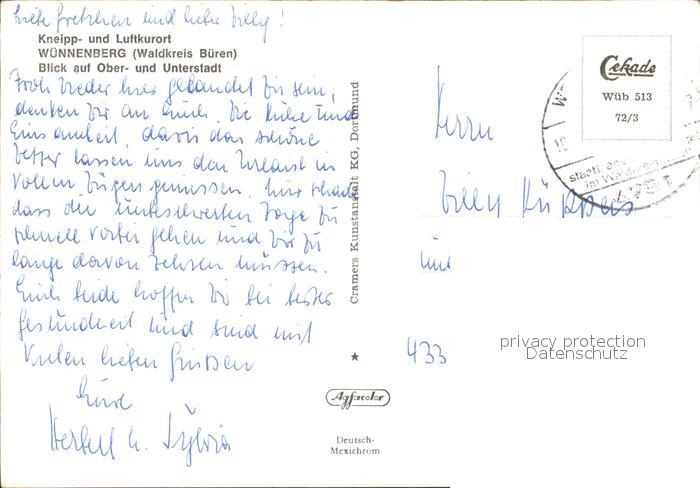 Liebe Gretchen und lieber Willy!
Kneipp- und Luftkurort
WÜNNENBERG (Waldkreis Büren)
Blick auf Ober- und Unterstadt
Froh wieder hier gelandet zu sein,
denken wir an Euch. Die Ruhe und
Einsamkeit, das schöne
Wetter lassen uns den Urlaub in
vollen Zügen geniessen. Nur schade
dass die Tage zu
schnell gehen und wir zu
lange davon zehren müssen.
Euch beide hoffen wir bei bester
Gesundheit und sind mit
vielen lieben Grüssen
Eure
Herbert u. Sylvia
Cramers Kunstanstalt KG, Dortmund
Agfacolor
Deutsch-
Mexichrom
Cekade
Wüb 513
72/3
staatl. an
im Waldkreis
Herrn
Willy Küppers
433
privacy protection
Datenschutz